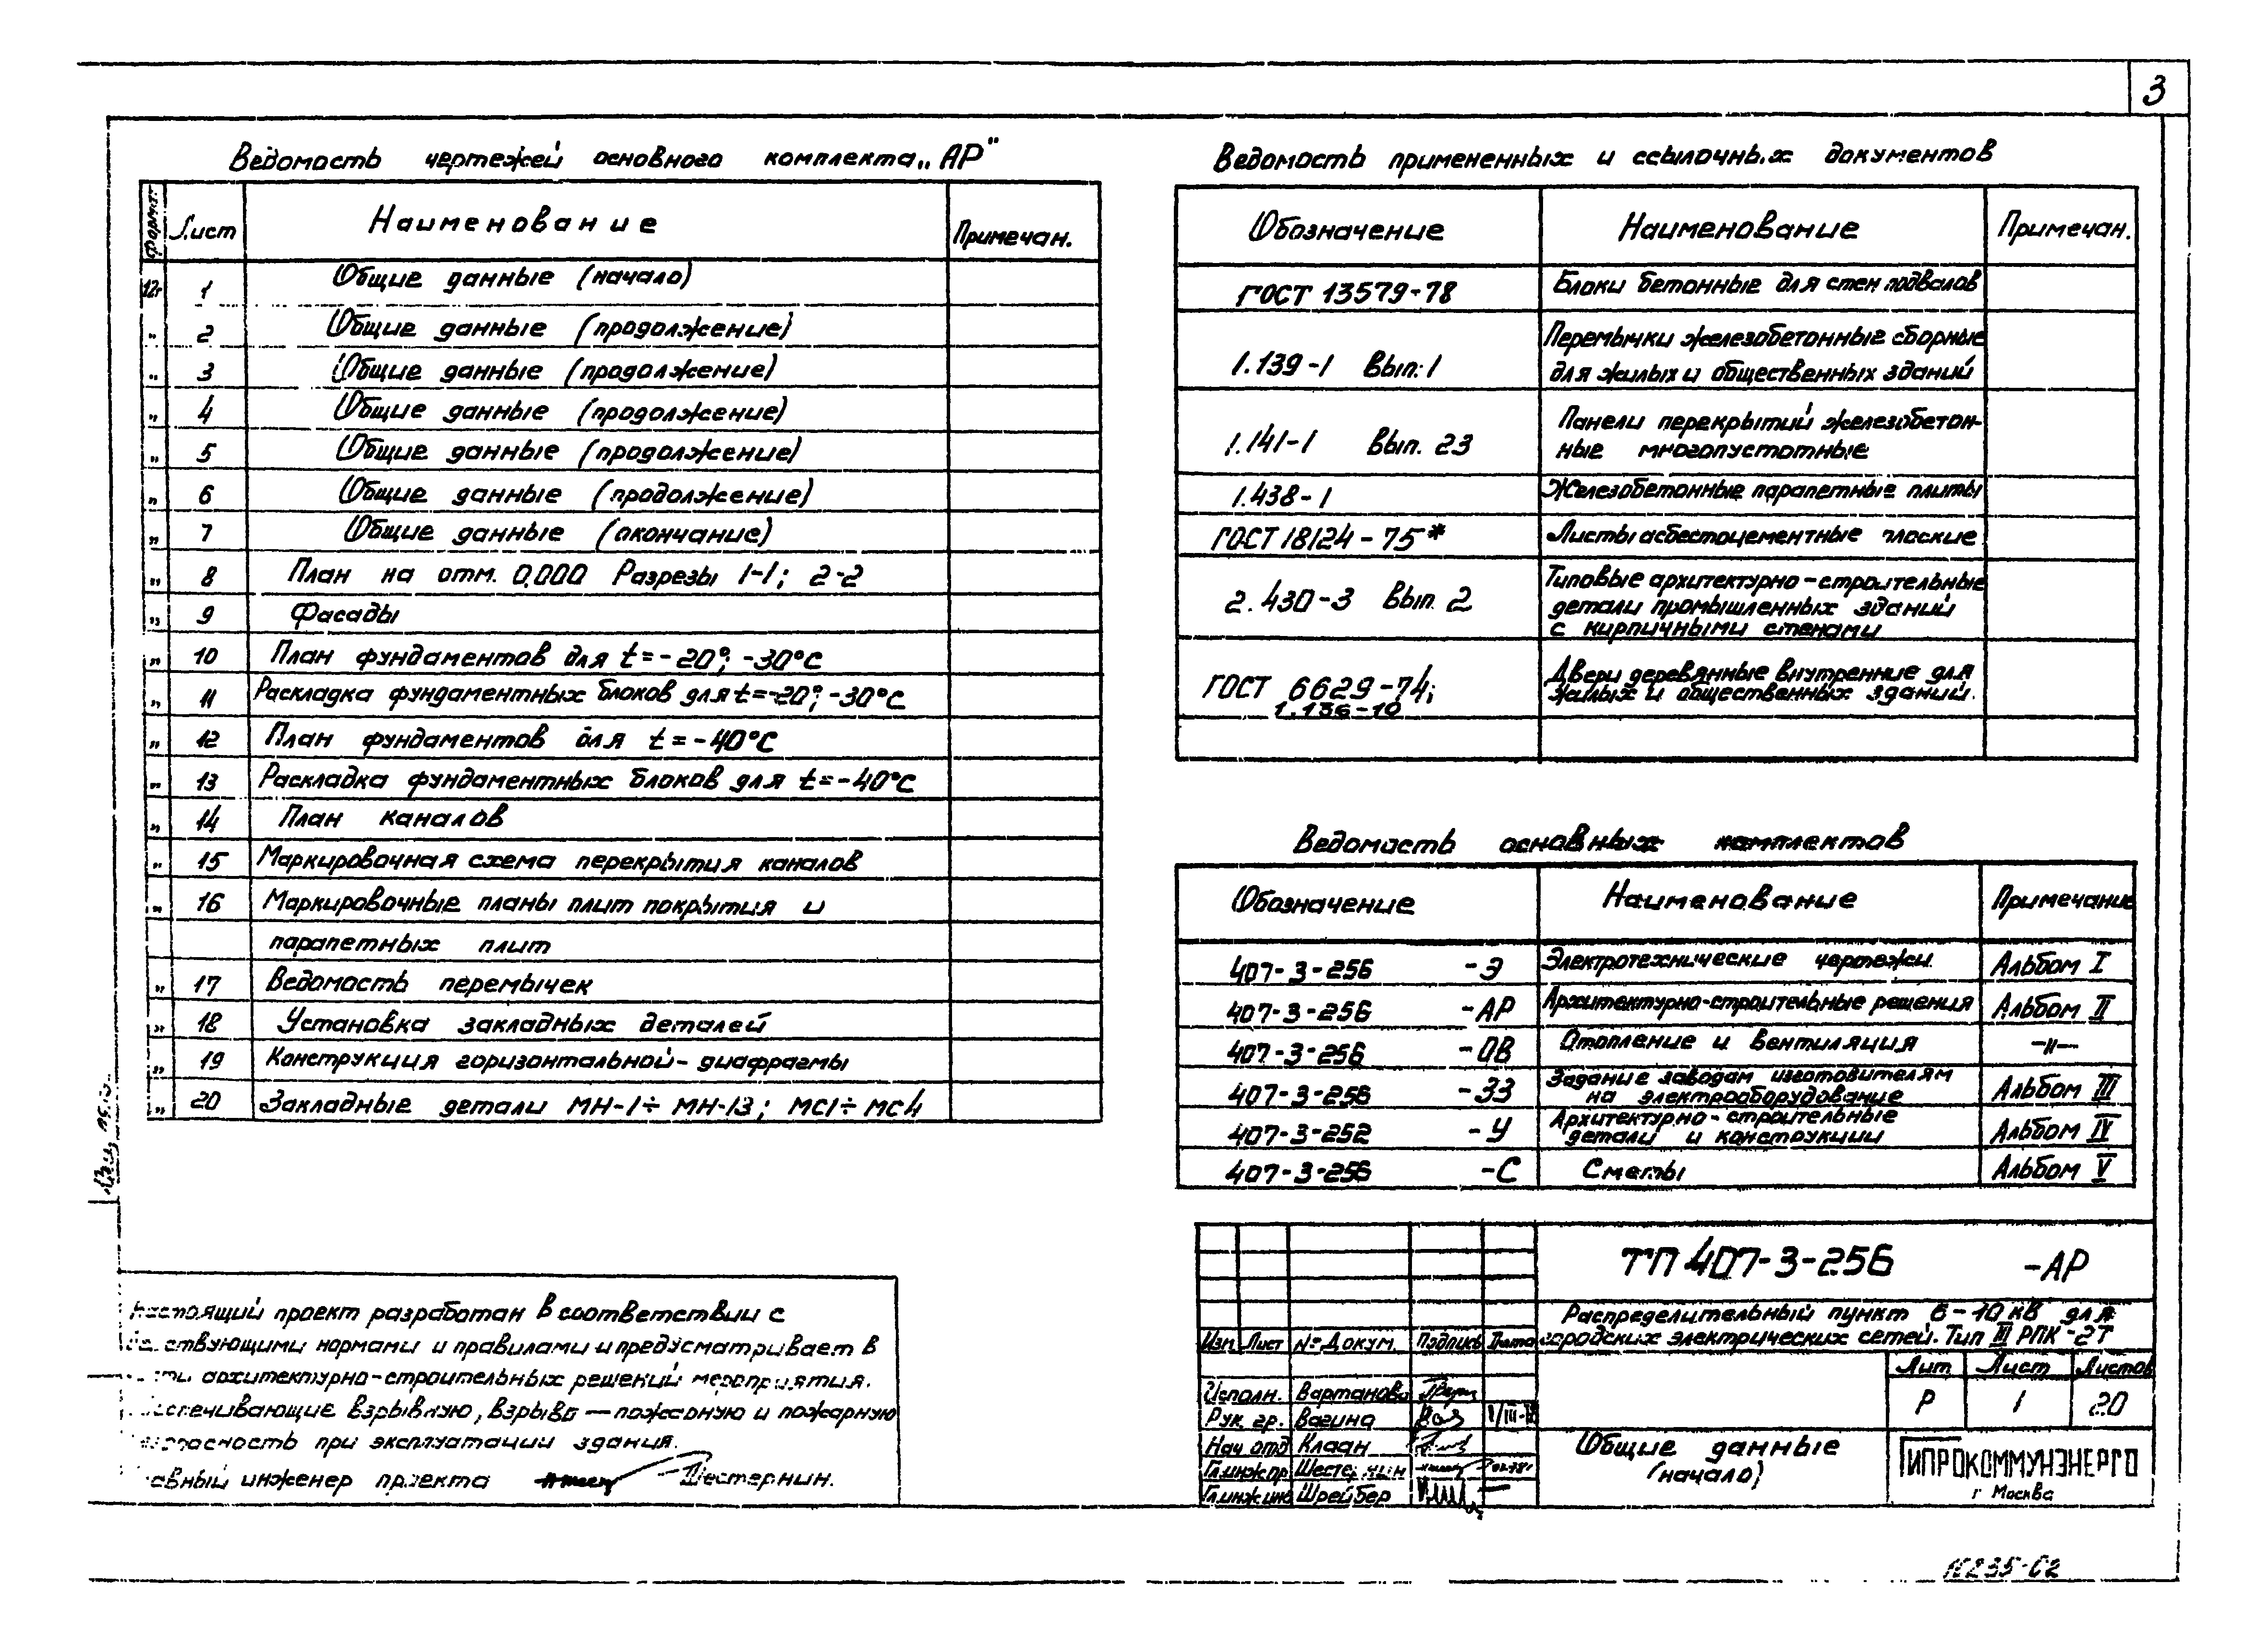 3
Ведомость чертежей основного комплекта „АР"
Формат Лист Наименование Примечан.
12г 1 Общие данные (начало)
" 2 Общие данные (продолжение)
" 3 Общие данные (продолжение)
" 4 Общие данные (продолжение)
" 5 Общие данные (продолжение)
" 6 Общие данные (продолжение)
" 7 Общие данные (окончание)
" 8 План на отм. 0.000 Разрезы 1-1; 2-2
" 9 Фасады
" 10 План фундаментов для t=-20°; -30°С
" 11 Раскладка фундаментных блоков для t=-20°; -30°С
" 12 План фундаментов для t=-40°С
" 13 Раскладка фундаментных блоков для t=-40°С
" 14 План каналов
" 15 Маркировочная схема перекрытия каналов
" 16 Маркировочные планы плит покрытия и
парапетных плит
" 17 Ведомость перемычек
" 18 Установка закладных деталей
" 19 Конструкция горизонтальной-диафрагмы
" 20 Закладные детали МН-1÷МН-13; МС1÷МС4
Ведомость примененных и ссылочных документов
Обозначение Наименование Примечан.
ГОСТ 13579-78 Блоки бетонные для стен подвалов
1.139-1 Вып.1 Перемычки железобетонные сборные
для жилых и общественных зданий
1.141-1 Вып. 23 Панели перекрытий железобетон-
ные многопустотные
1.438-1 Железобетонные парапетные плиты
ГОСТ 18124-75* Листы асбестоцементные плоские
2.430-3 Вып. 2 Типовые архитектурно-строительные
детали промышленных зданий
с кирпичными стенами
ГОСТ 6629-74; Двери деревянные внутренние для
1.136-10 жилых и общественных зданий.
Ведомость основных комплектов
Обозначение Наименование Примечание
407-3-256 -Э Электротехнические чертежи Альбом I
407-3-256 -АР Архитектурно-строительные решения Альбом II
407-3-256 -ОВ Отопление и вентиляция —"—
407-3-256 -ЗЗ Задание заводам изготовителям
на электрооборудование Альбом III
407-3-252 -У Архитектурно-строительные
детали и конструкции Альбом IV
407-3-256 -С Сметы Альбом V
Настоящий проект разработан в соответствии с
действующими нормами и правилами и предусматривает в
архитектурно-строительных решений мероприятия.
обеспечивающие взрывную, взрыво-пожарную и пожарную
безопасность при эксплуатации здания.
Главный инженер проекта Шестернин.
ТП 407-3-256 -АР
Распределительный пункт 6-10 кВ для
городских электрических сетей. Тип III РПК-2Т
Изм Лист № Докум. Подпись Дата
Лит Лист Листов
Р 1 20
Исполн. Вартанова
Рук. гр. Вагина
Нач отд Клаан
Гл.инж.пр. Шестернин
Гл.инж.инс Шрейбер
Общие данные
(начало)
ГИПРОКОММУНЭНЕРГО
г Москва